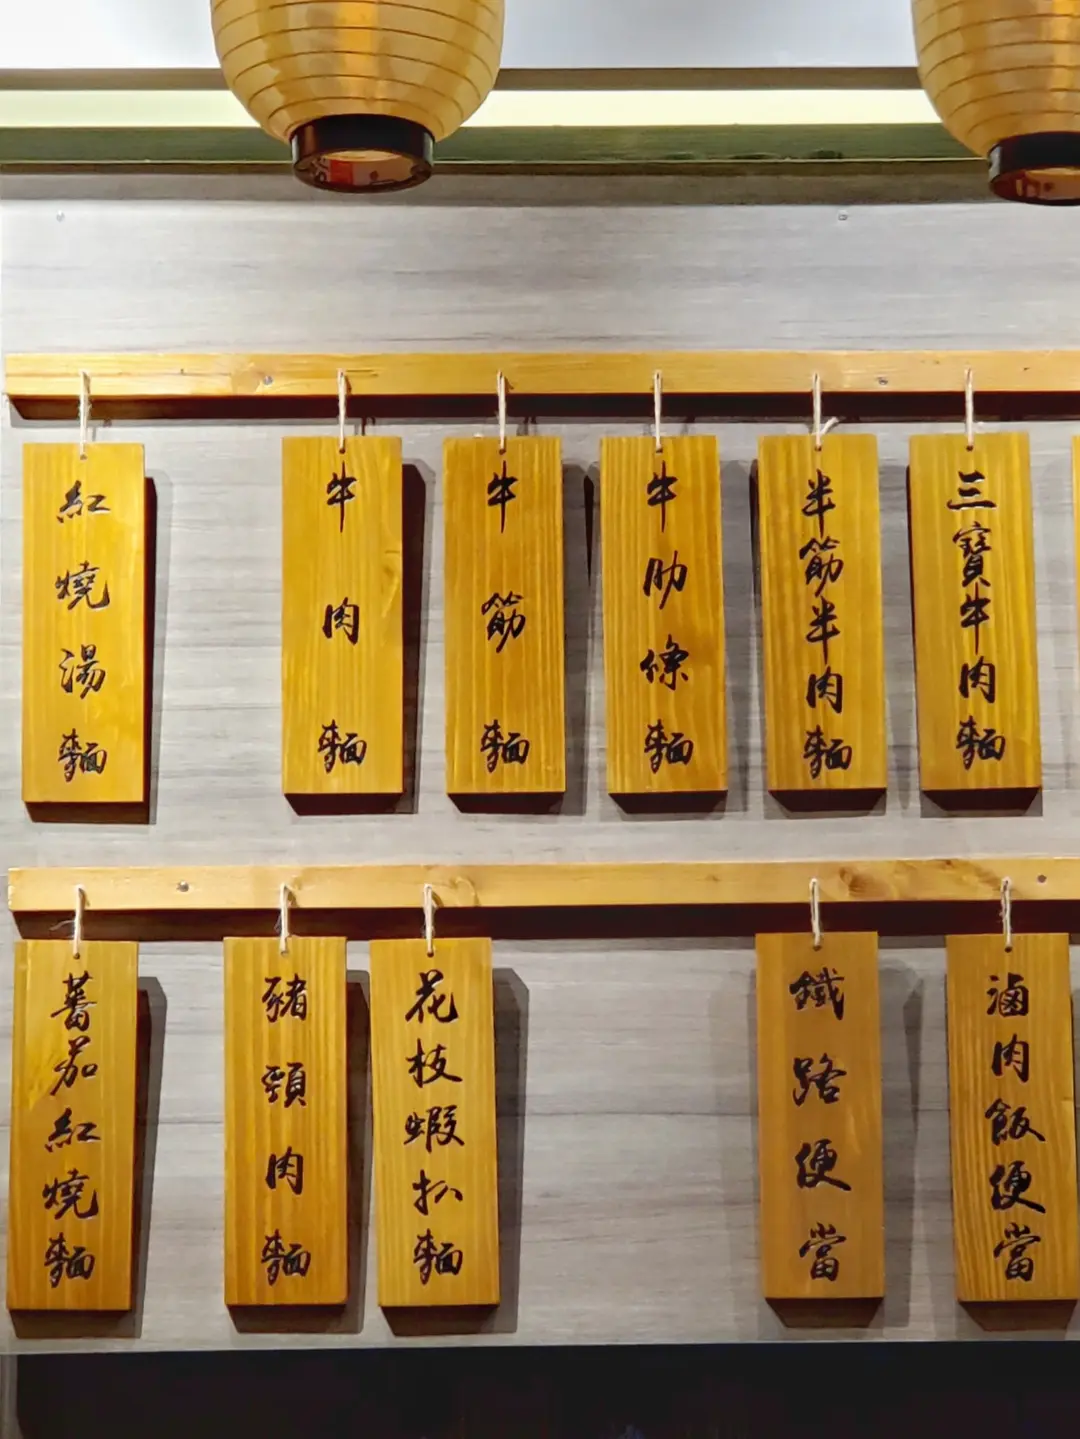 紅燒湯麵
牛肉麵
牛筋麵
牛肋條麵
半筋半肉麵
三寶牛肉麵
蕃茄紅燒麵
豬頸肉麵
花枝蝦扒麵
鐵路便當
滷肉飯便當